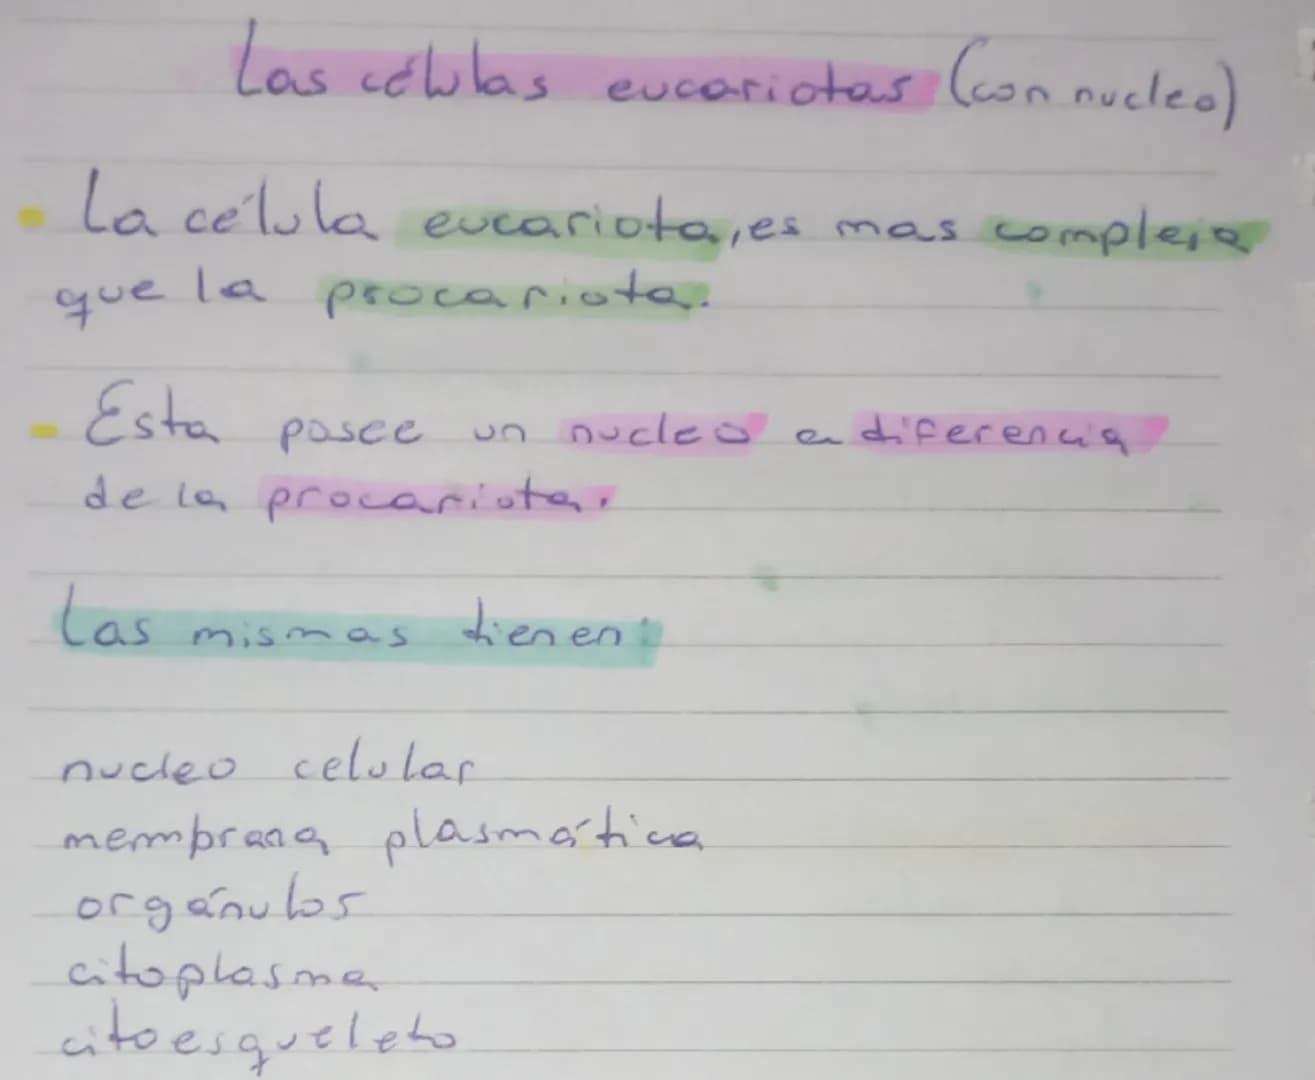 Las células eucariotas (con nucleo)
- La célula eucariota, es mas compleja
que la procariota.
- Esta posee un nucleo a diferencia
de la procariota.
Las mismas tienen:
nucleo celular
membrana plasmática
orgánulos
citoplasma
citoesqueleto